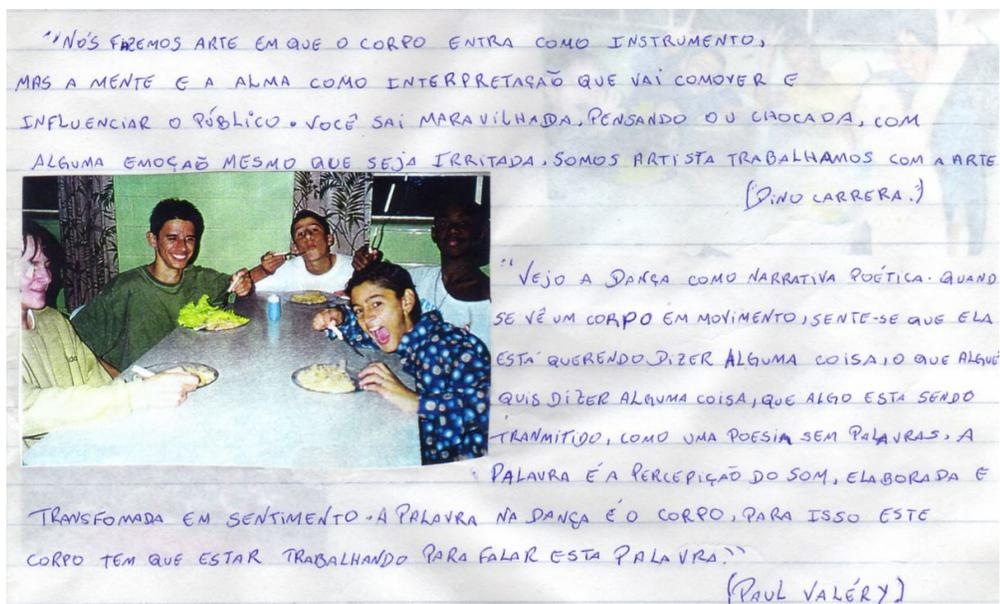 "NÓS FAZEMOS ARTE EM QUE O CORPO ENTRA COMO INSTRUMENTO,
MAS A MENTE E A ALMA COMO INTERPRETAÇÃO QUE VAI COMOVER E
INFLUENCIAR O PÚBLICO. VOCÊ SAI MARAVILHADA, PENSANDO OU CHOCADA, COM
ALGUMA EMOÇAÕ MESMO QUE SEJA IRRITADA. SOMOS ARTISTA TRABALHAMOS COM A ARTE
(DINO CARRERA.)
"VEJO A DANÇA COMO NARRATIVA POÉTICA. QUAND
SE VÊ UM CORPO EM MOVIMENTO, SENTE-SE QUE ELA
ESTÁ QUERENDO DIZER ALGUMA COISA, O QUE ALGUÉ
QUIS DIZER ALGUMA COISA, QUE ALGO ESTA SENDO
TRANMITIDO, COMO UMA POESIA SEM PALAVRAS. A
PALAVRA É A PERCEPIÇÃO DO SOM, ELABORADA E
TRANSFOMADA EM SENTIMENTO. A PALAVRA NA DANÇA É O CORPO, PARA ISSO ESTE
CORPO TEM QUE ESTAR TRABALHANDO PARA FALAR ESTA PALAVRA."
(PAUL VALÉRY)